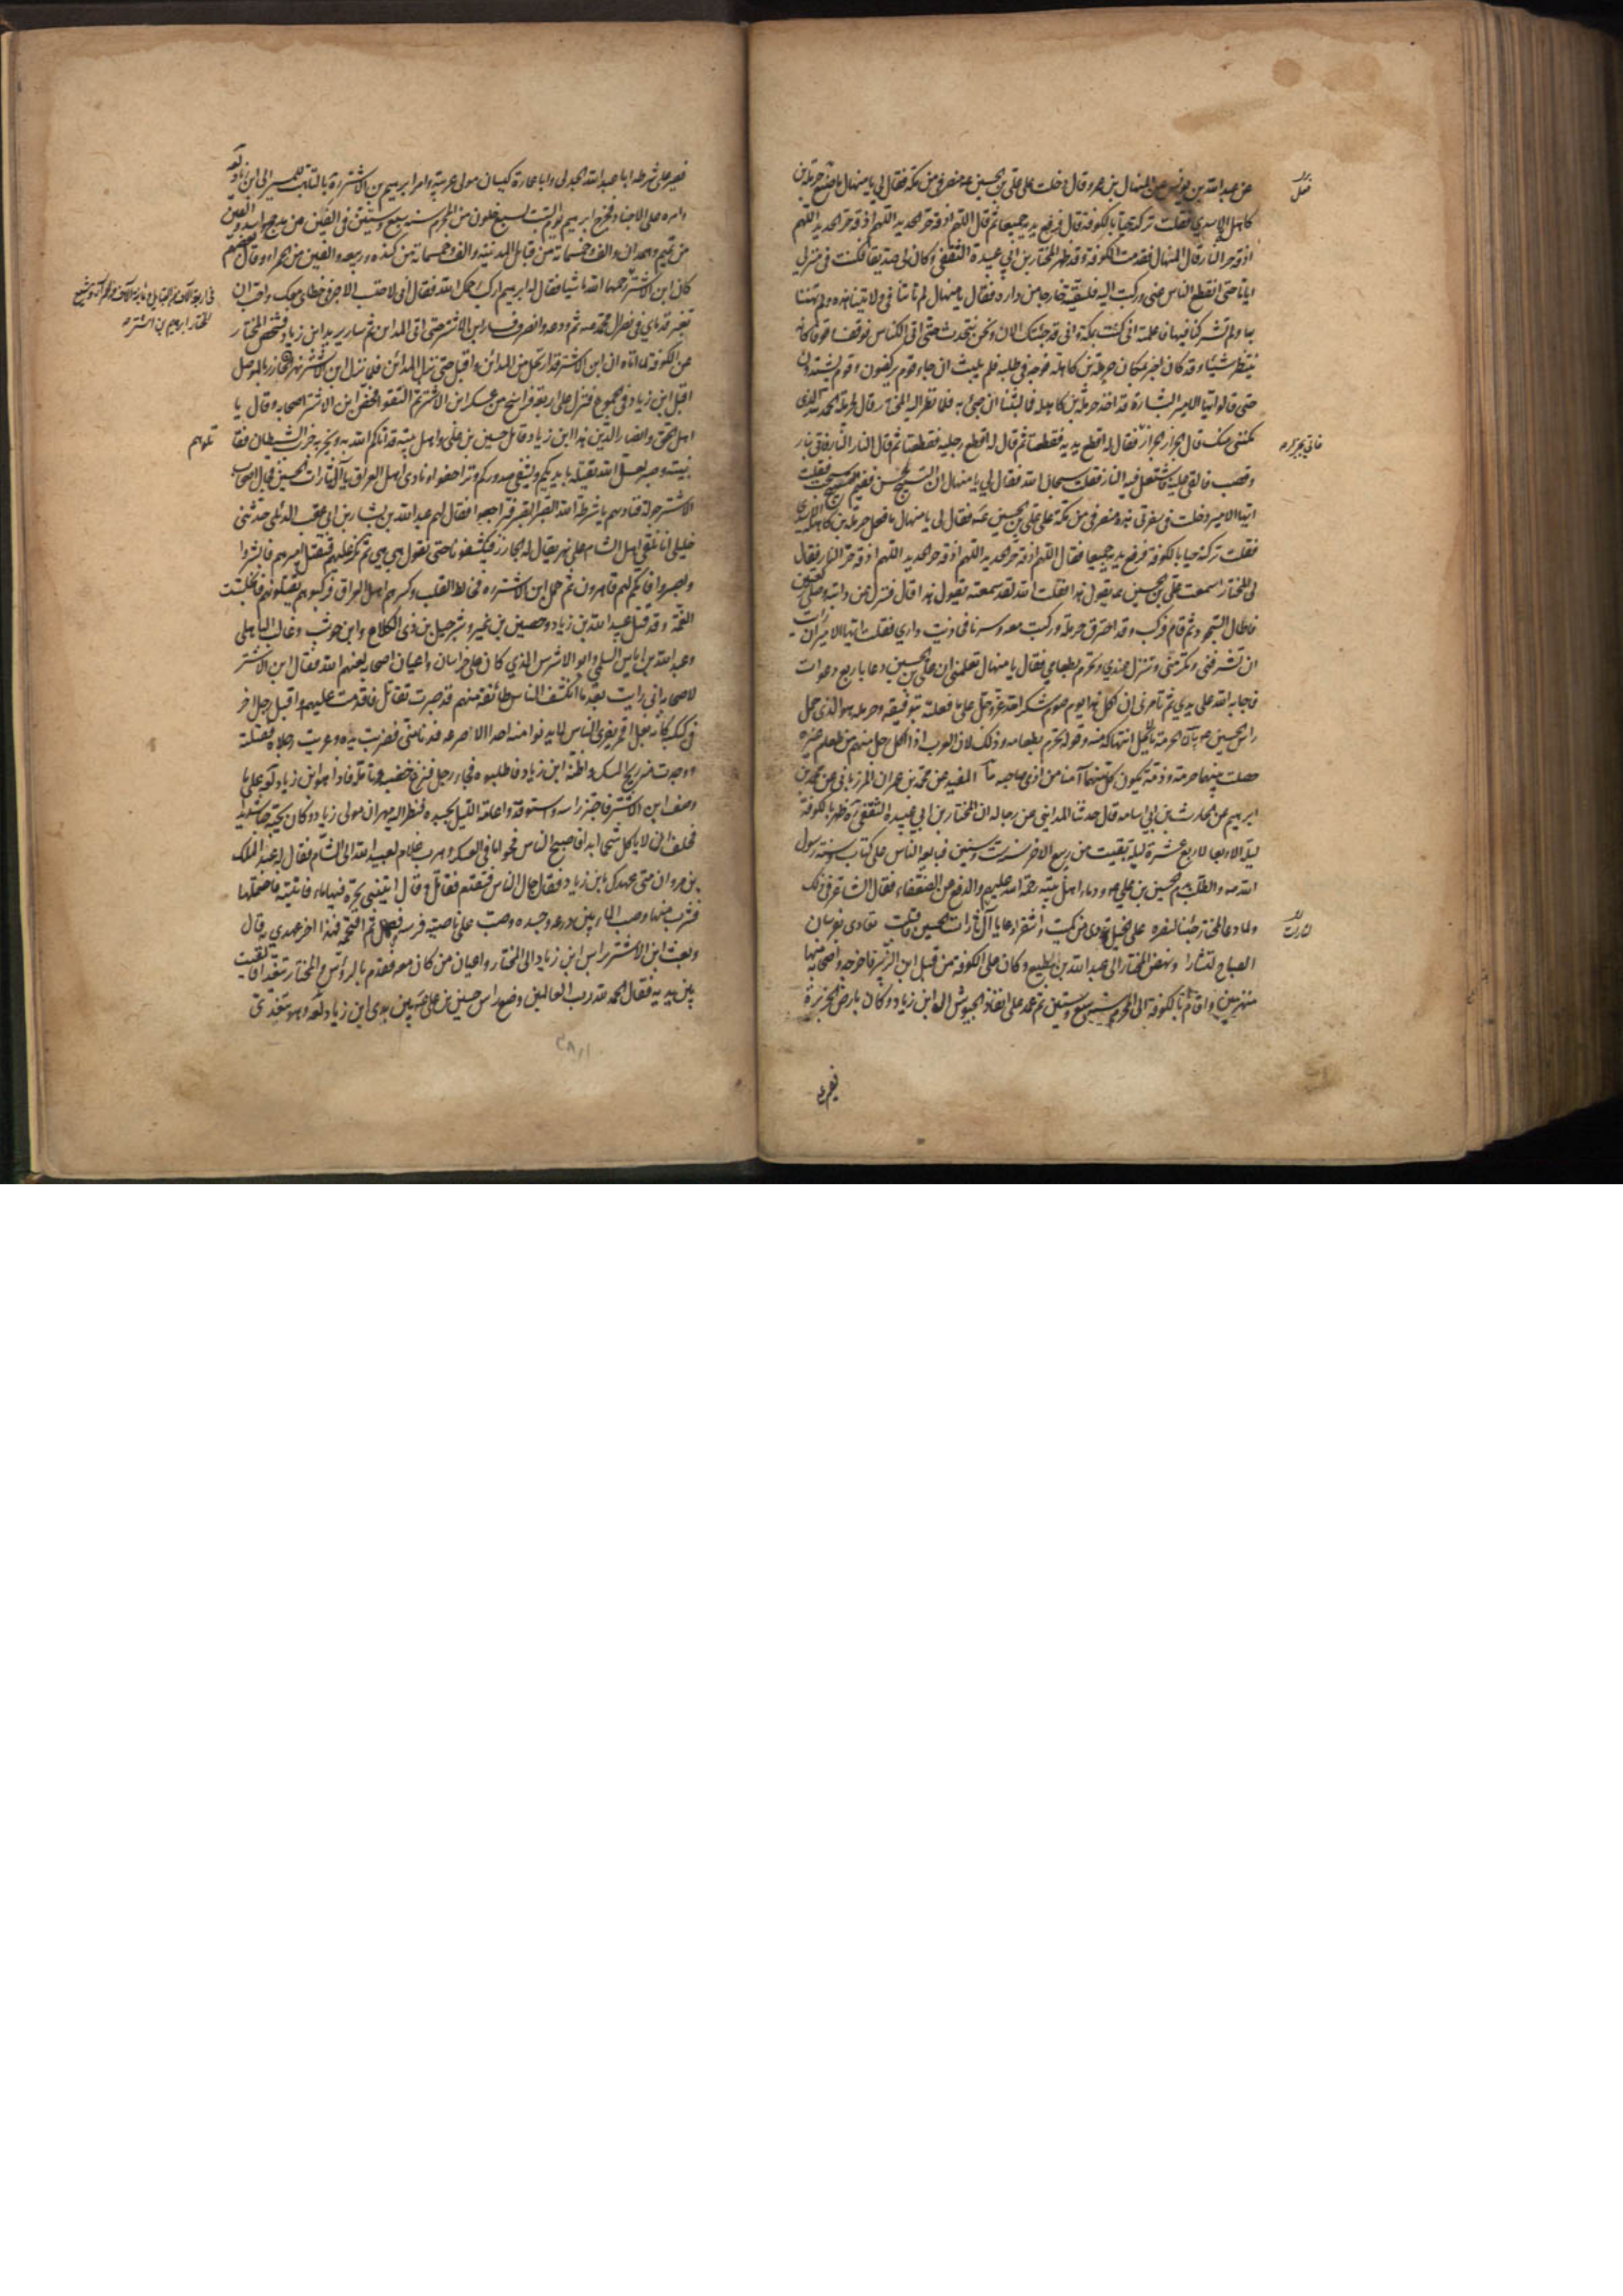 عن عبد الله بن يونس عن المنهال بن عمرو قال دخلت على علي بن الحسين ع منصرفي من مكة فقال لي يا منهال ما صنع حرملة بن
كاهل الاسدي فقلت تركته حيا بالكوفة قال فرفع يديه جميعا ثم قال اللهم اذقه حر الحديد اللهم اذقه حر الحديد اللهم
اذقه حر النار قال المنهال فقدمت الكوفة وقد ظهر المختار بن ابي عبيدة الثقفي وكان لي صديقا فكنت في منزلي
اياما حتى انقطع الناس عني وركبت اليه فلقيته خارجا من داره فقال يا منهال لم تأتنا في ولايتنا هذه ولم تهننا
بها ولم تشركنا فيها فاعلمته اني كنت بمكة واني قد جئتك الان ونحن نتحدث حتى اتى الكناس فوقف وقوفا كانه
ينتظر شيئا وقد كان اخبر بمكان حرملة بن كاهلة فوجه في طلبه فلم يلبث ان جاء قوم يركضون وقوم يشتدون
حتى قالوا ايها الامير البشارة قد اخذ حرملة بن كاهلة فما لبثنا ان جيء به فلما نظر اليه المختار قال لحرملة الحمد لله الذي
مكنني منك ثم قال الجزار الجزار فقال له اقطع يديه فقطعتا ثم قال له اقطع رجليه فقطعتا ثم قال النار النار فاتي بنار
وقصب فالقي عليه فاشتعل فيه النار فقلت سبحان الله فقال لي يا منهال ان التسبيح لحسن ففيم سبحت فقلت
ايها الامير دخلت في سفرتي هذه منصرفي من مكة على علي بن الحسين ع فقال لي يا منهال ما فعل حرملة بن كاهلة الاسدي
فقلت تركته حيا بالكوفة فرفع يديه جميعا فقال اللهم اذقه حر الحديد اللهم اذقه حر الحديد اللهم اذقه حر النار فقال
لي المختار اسمعت علي بن الحسين ع يقول هذا فقلت والله لقد سمعته يقول هذا قال فنزل عن دابته وصلى ركعتين
فاطال السجود ثم قام فركب وقد احترق حرملة وركبت معه وسرنا فحاذيت داري فقلت ايها الامير ان رأيت
ان تشرفني وتكرمني وتنزل عندي وتحرم بطعامي فقال يا منهال تعلمني ان علي بن الحسين دعا باربع دعوات
فاجابه الله على يدي ثم تأمرني ان اكل هذا يوم صوم شكرا لله عز وجل على ما فعلته بتوفيقه وحرملة هو الذي حمل
راس الحسين ع
ابرهيم عن الحارث بن ابي اسامة قال حدثنا المدايني عن رجاله ان المختار بن ابي عبيدة الثقفي ره ظهر بالكوفة
ليلة الاربعا لاربع عشرة ليلة بقيت من ربيع الاخر سنة ست وستين فبايعه الناس على كتاب الله وسنة رسول
الله ص والطلب بدم الحسين بن علي ع ودماء اهل بيته رحمة الله عليهم والدفع عن الضعفاء فقال الشاعر في ذلك
ولما دعا المختار جئنا لنصره على الخيل تردى من كميت واشقرا دعا يا لثارات الحسين فاقبلت تعادى بفرسان
الصباح لتثأرا ونهض المختار الى عبد الله بن مطيع وكان على الكوفة من قبل ابن الزبير فاخرجه واصحابه منها
منهزمين واقام بالكوفة الى المحرم سنة سبع وستين ثم عمد على انفاذ الجيوش الى ابن زياد وكان بارض الجزيرة
فصير على شرطه ابا عبد الله الجدلي وابا عمارة كيسان مولى عرينة وامر ابرهيم بن الاشتر ره بالتأهب للمسير الى ابن زياد
وامره على الاجناد فخرج ابرهيم يوم السبت لسبع خلون من المحرم سنة سبع وستين في الفين من مذحج واسد والفين
من تميم وهمدان والف وخمسمائة من قبائل المدينة والف وخمسمائة من كندة وربيعة والفين من الحمراء وقال بعضهم
كان ابن الاشتر
عن الكوفة لما اتاه ان ابن الاشتر قد ارتحل من المدائن واقبل حتى نزل المدائن فلما نزل ابن الاشتر نهر الخازر بالموصل
اقبل ابن زياد في الجموع فنزل على اربعة فراسخ من عسكر ابن الاشتر ثم التقوا فحض ابن الاشتر اصحابه وقال يا
اهل الحق وانصار الدين هذا ابن زياد قاتل حسين بن علي واهل بيته قد اتاكم الله به وبحزبه حزب الشيطان فقا
تلوهم
بنية وصبر لعل الله يقتله بايديكم ويشفي صدوركم وتزاحفوا ونادى اهل العراق يا آل ثارات الحسين فجال اصحاب
ابن الاشتر جولة فناداهم يا شرطة الله الصبر الصبر فتراجعوا فقال لهم عبد الله بن يسار بن ابي عقب الدئلي حدثني
خليلي انا نلقى اهل الشام على نهر يقال له الخازر فيكشفونا حتى نقول هي هي ثم نكر عليهم فنقتل اميرهم فابشروا
واصبروا فانكم لهم قاهرون ثم حمل ابن الاشتر ره فخالط القلب وكسرهم اهل العراق فركبوهم يقتلونهم فانجلت
الغمة وقد قتل عبيد الله بن زياد وحصين بن نمير وشرحبيل بن ذي الكلاع وابن حوشب وغالب الباهلي
وعبد الله بن اياس السلمي وابو الاشرس الذي كان على خراسان واعيان اصحابه لعنهم الله فقال ابن الاشتر
لاصحابه اني رايت بعد ما انكشف الناس طائفة منهم قد صبرت تقاتل فاقدمت عليهم واقبل رجل اخر
في كبكبة كانه بغل اقمر يفري الناس لا يدنو منه احد الا صرعه فدنا مني فضربت يده
ووجدت منه ريح المسك واظنه ابن زياد فاطلبوه فجاء رجل فنزع خفيه وتامله فاذا هو ابن زياد لعنه على ما
وصف ابن الاشتر فاحتز راسه واستوقدوا عامة الليل بجسده فنظر اليه مهران مولى زياد وكان يحبه حبا شديدا
فحلف ان لا ياكل شحما ابدا فاصبح الناس فحووا ما في العسكر وهرب غلام لعبيد الله الى الشام فقال له عبد الملك
بن مروان متى عهدك بابن زياد فقال جال الناس فتقدم فقاتل وقال ايتني بجرة فيها ماء فاتيته فاحتملها
فشرب منها وصب الماء بين درعه وجسده وصب على ناصية فرسه فصهل ثم اقتحمه فهذا اخر عهدي به قال
وبعث ابن الاشتر براس ابن زياد الى المختار واعيان من كان معه فقدم بالرؤس والمختار يتغدى فالقيت
بين يديه فقال الحمد لله رب العالمين وضع راس حسين بن علي ع بين يدي ابن زياد لعنه وهو يتغدى